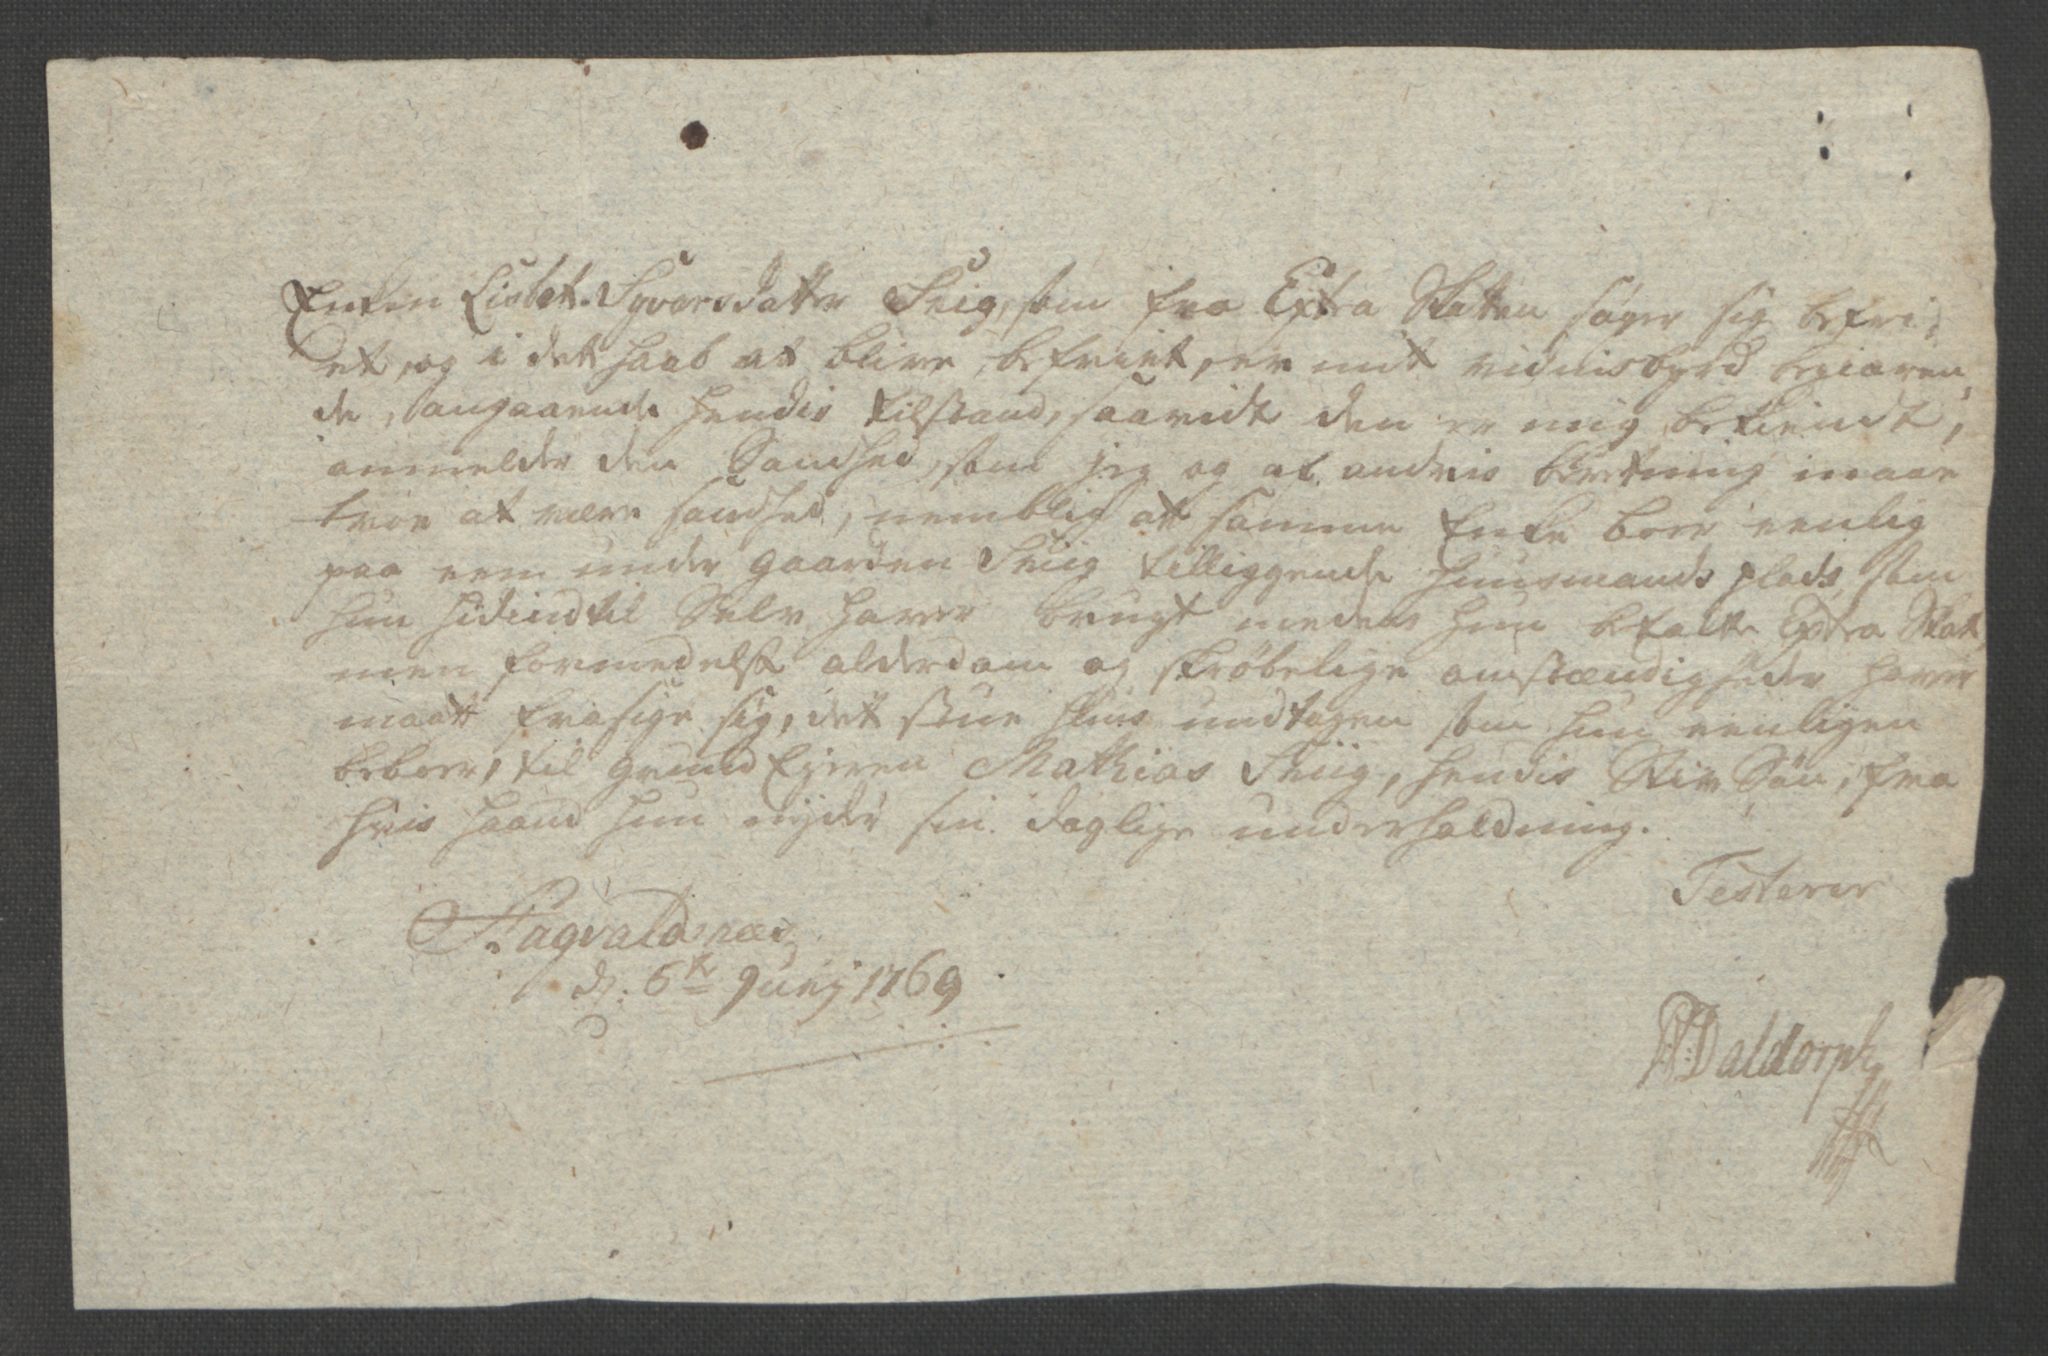 Enken Lisbet Syversdatter Sviig, som fra Extra Skatten søger sig befri-
et, og i det haab at blive befriet, er mit vidnisbyrd begiæren-
de, angaaende hendis tilstand, saavidt den er mig bekiendt,
anmelder den Sandhed, som jeg og af andris beretning maae
troe at være sandhed, nemblig att samme Enke boer eenlig
paa een under gaarden Sviig tilliggende Huusmands plads, som
hun hidindtil Selv haver brugt medens hun betalte Extra Skatt,
men formedelst alderdom og skrøbelige omstændigheder haver
maatt frasige sig, det stue huus undtagen som hun eenligen
beboer, til grund Eyeren Mathias Sviig, hendis Stiv Søn, fra
hvis haand hun nyder sin daglige underholdning.
Testerer
Tagvaldsnæs
d. 6te Junij 1769
Daldorph